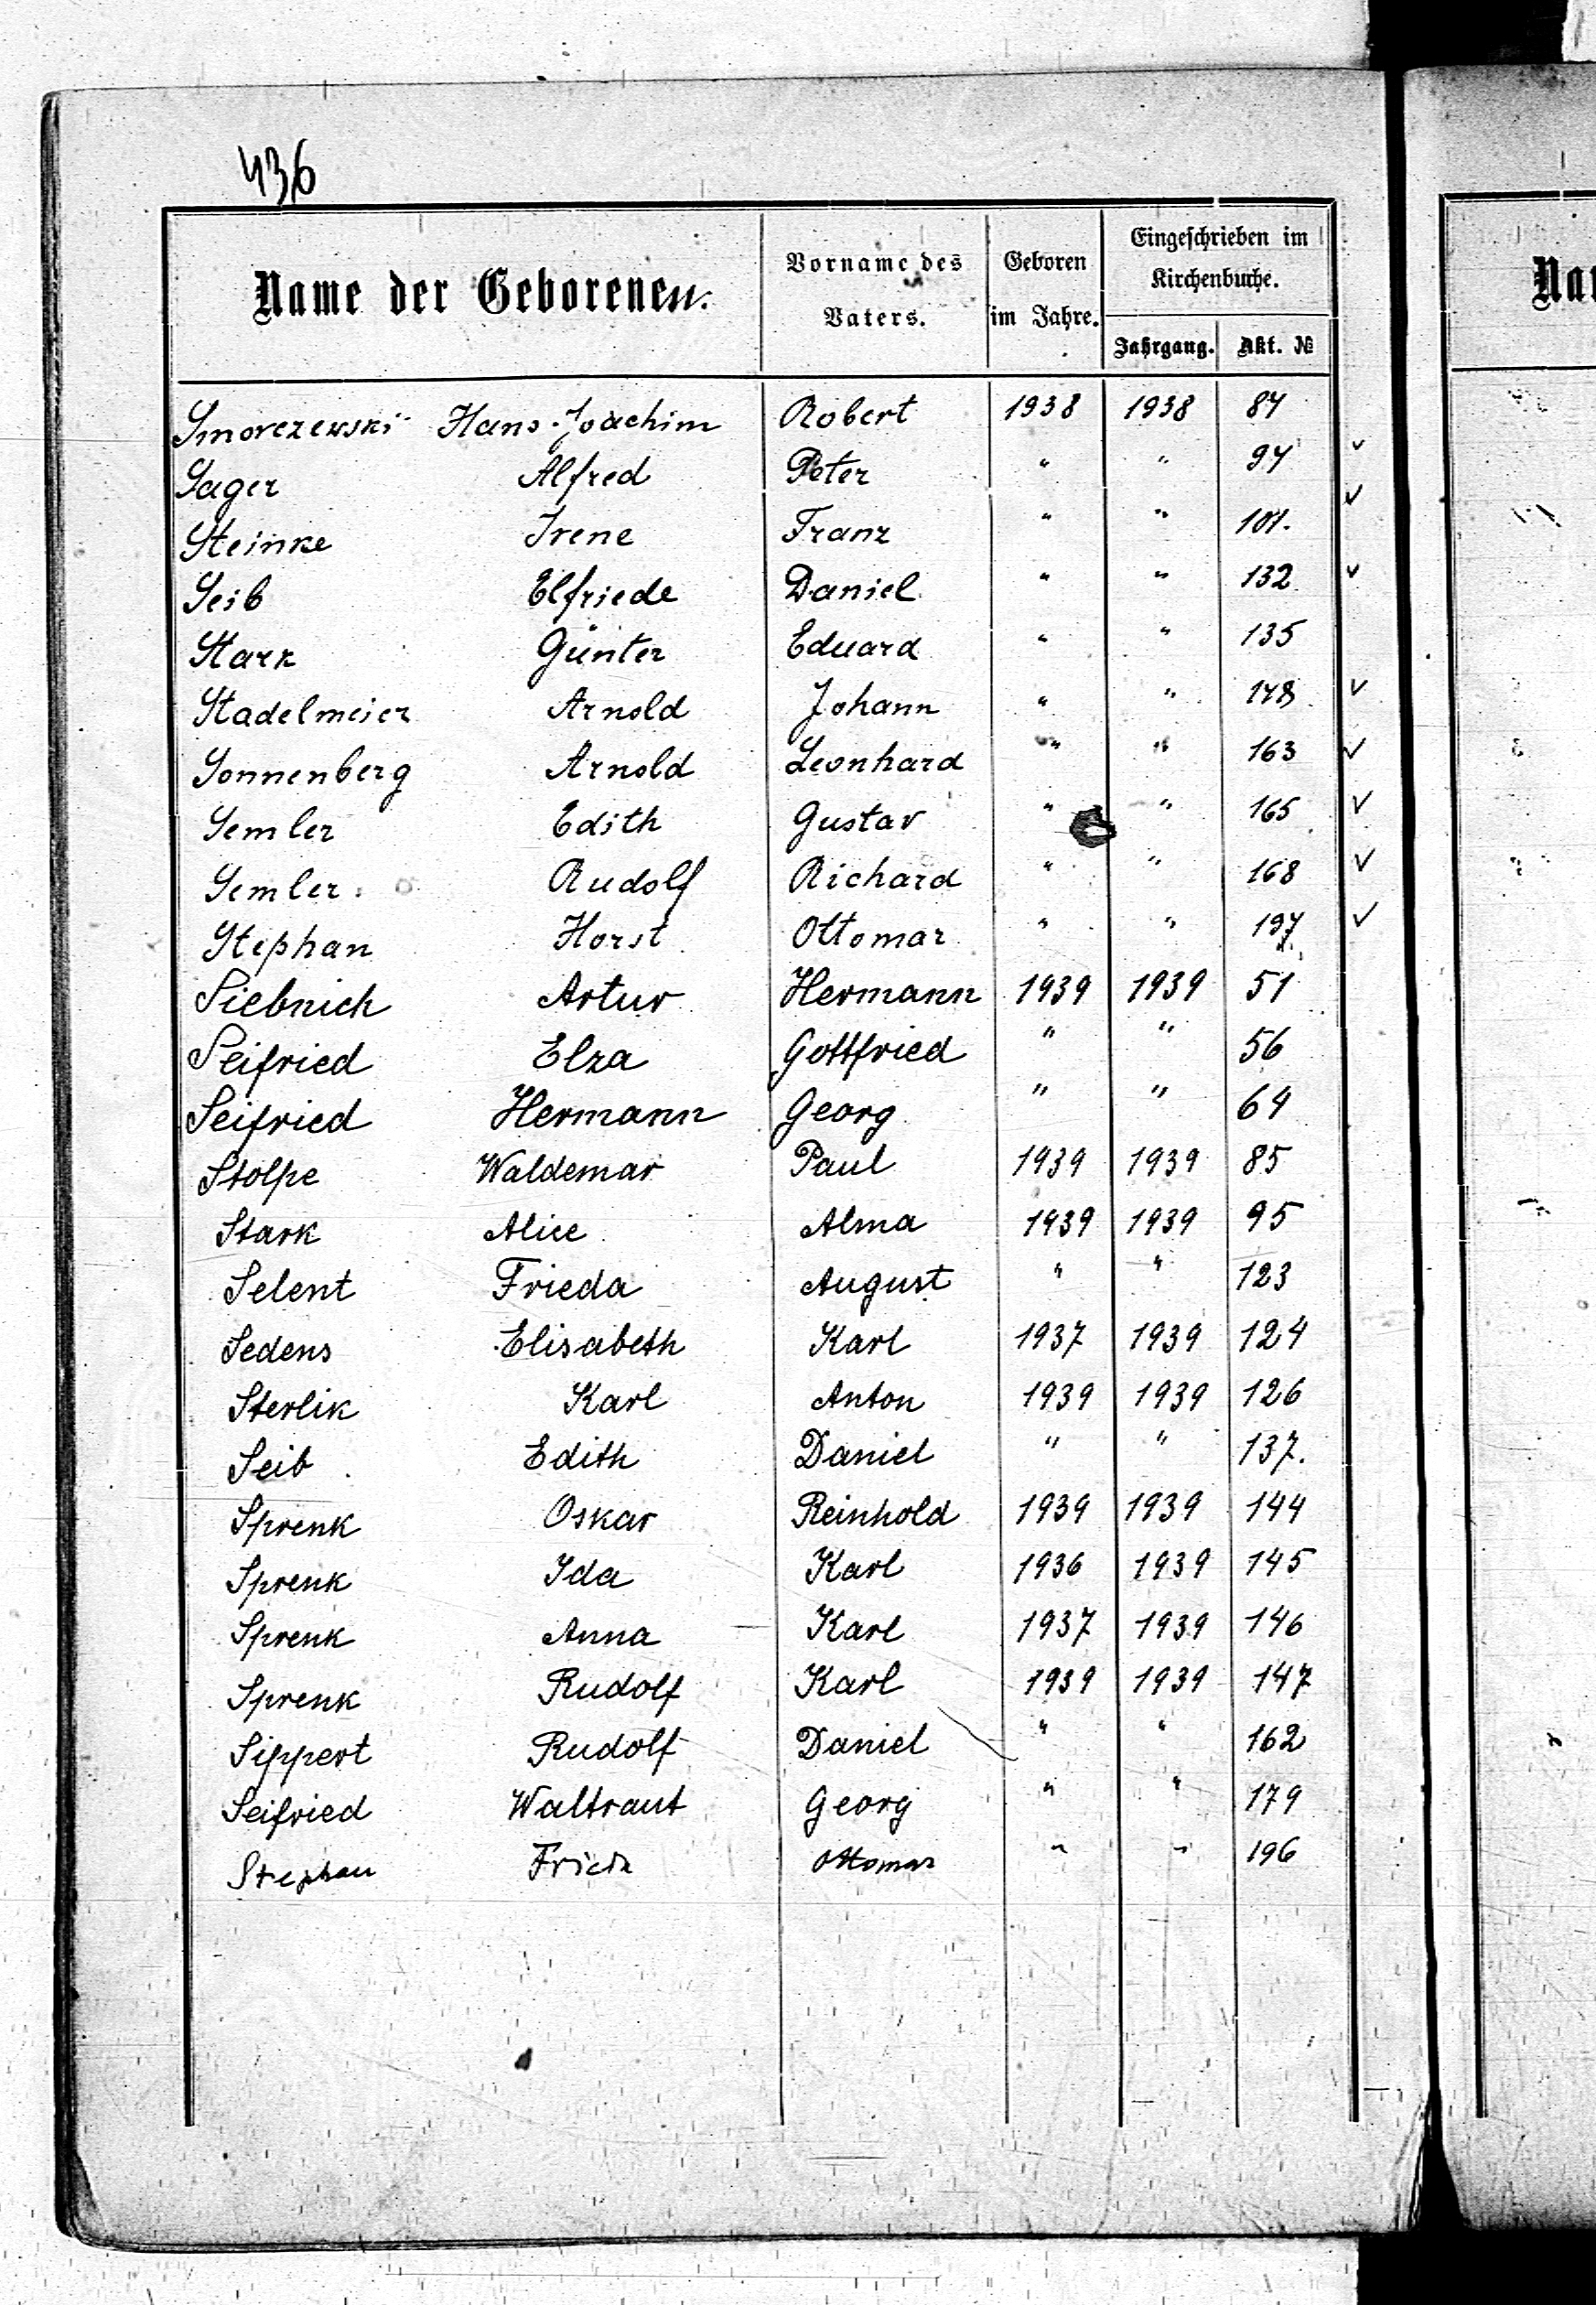 436
Name der Geborenen. Vorname des Vaters. Geboren im Jahre. Eingeschrieben im Kirchenbuche.
Jahrgang. Akt. №
Smorczewski Hans-Joachim Robert 1938 1938 84
Sager Alfred Peter " " 94 ✓
Steinke Irene Franz " " 101. ✓
Seib Elfriede Daniel " " 132 ✓
Stark Günter Eduard " " 135
Stadelmeier Arnold Johann " " 148 ✓
Sonnenberg Arnold Leonhard " " 163 ✓
Semler Edith Gustav " " 165 ✓
Semler Rudolf Richard " " 168 ✓
Stephan Horst Ottomar " " 197 ✓
Siebnich Artur Hermann 1939 1939 51
Seifried Elza Gottfried " " 56
Seifried Hermann Georg " " 64
Stolpe Waldemar Paul 1939 1939 85
Stark Alice Alma 1939 1939 95
Selent Frieda August " " 123
Sedens Elisabeth Karl 1937 1939 124
Sterlik Karl Anton 1939 1939 126
Seib Edith Daniel " " 137.
Sprenk Oskar Reinhold 1939 1939 144
Sprenk Ida Karl 1936 1939 145
Sprenk Anna Karl 1937 1939 146
Sprenk Rudolf Karl 1939 1939 147
Sippert Rudolf Daniel " " 162
Seifried Waltraut Georg " " 179
Stephan Ottomar " " 196
Na